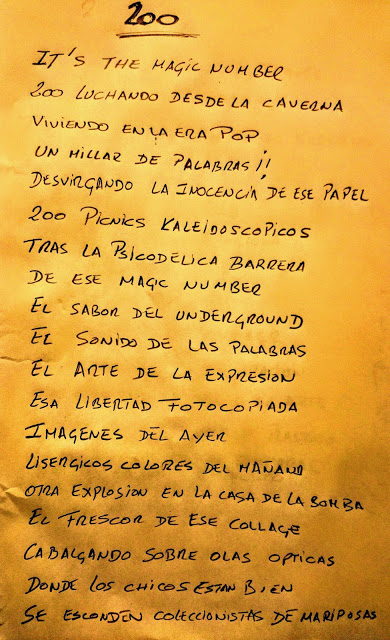 200
IT'S THE MAGIC NUMBER
200 LUCHANDO DESDE LA CAVERNA
VIVIENDO EN LA ERA POP
UN MILLAR DE PALABRAS!!
DESVIRGANDO LA INOCENCIA DE ESE PAPEL
200 PICNICS KALEIDOSCOPICOS
TRAS LA PSICODÉLICA BARRERA
DE ESE MAGIC NUMBER
EL SABOR DEL UNDERGROUND
EL SONIDO DE LAS PALABRAS
EL ARTE DE LA EXPRESION
ESA LIBERTAD FOTOCOPIADA
IMAGENES DEL AYER
LISERGICOS COLORES DEL MAÑANA
OTRA EXPLOSION EN LA CASA DE LA BOMBA
EL FRESCOR DE ESE COLLAGE
CABALGANDO SOBRE OLAS OPTICAS
DONDE LOS CHICOS ESTAN BIEN
SE ESCONDEN COLECCIONISTAS DE MARIPOSAS